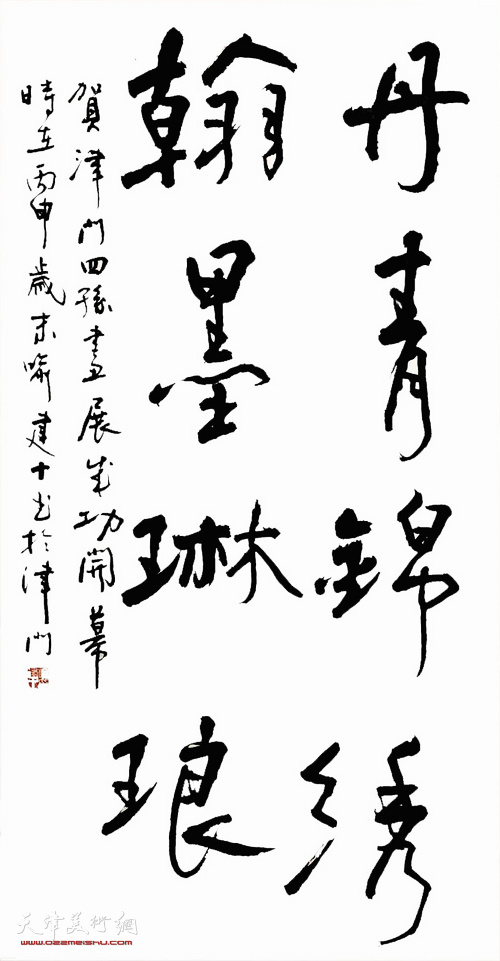 丹青錦绣
翰墨琳琅
賀津門四孫畫展成功開幕
時在丙申歲末喻建十书於津門
天津美術網
www.022meishu.com